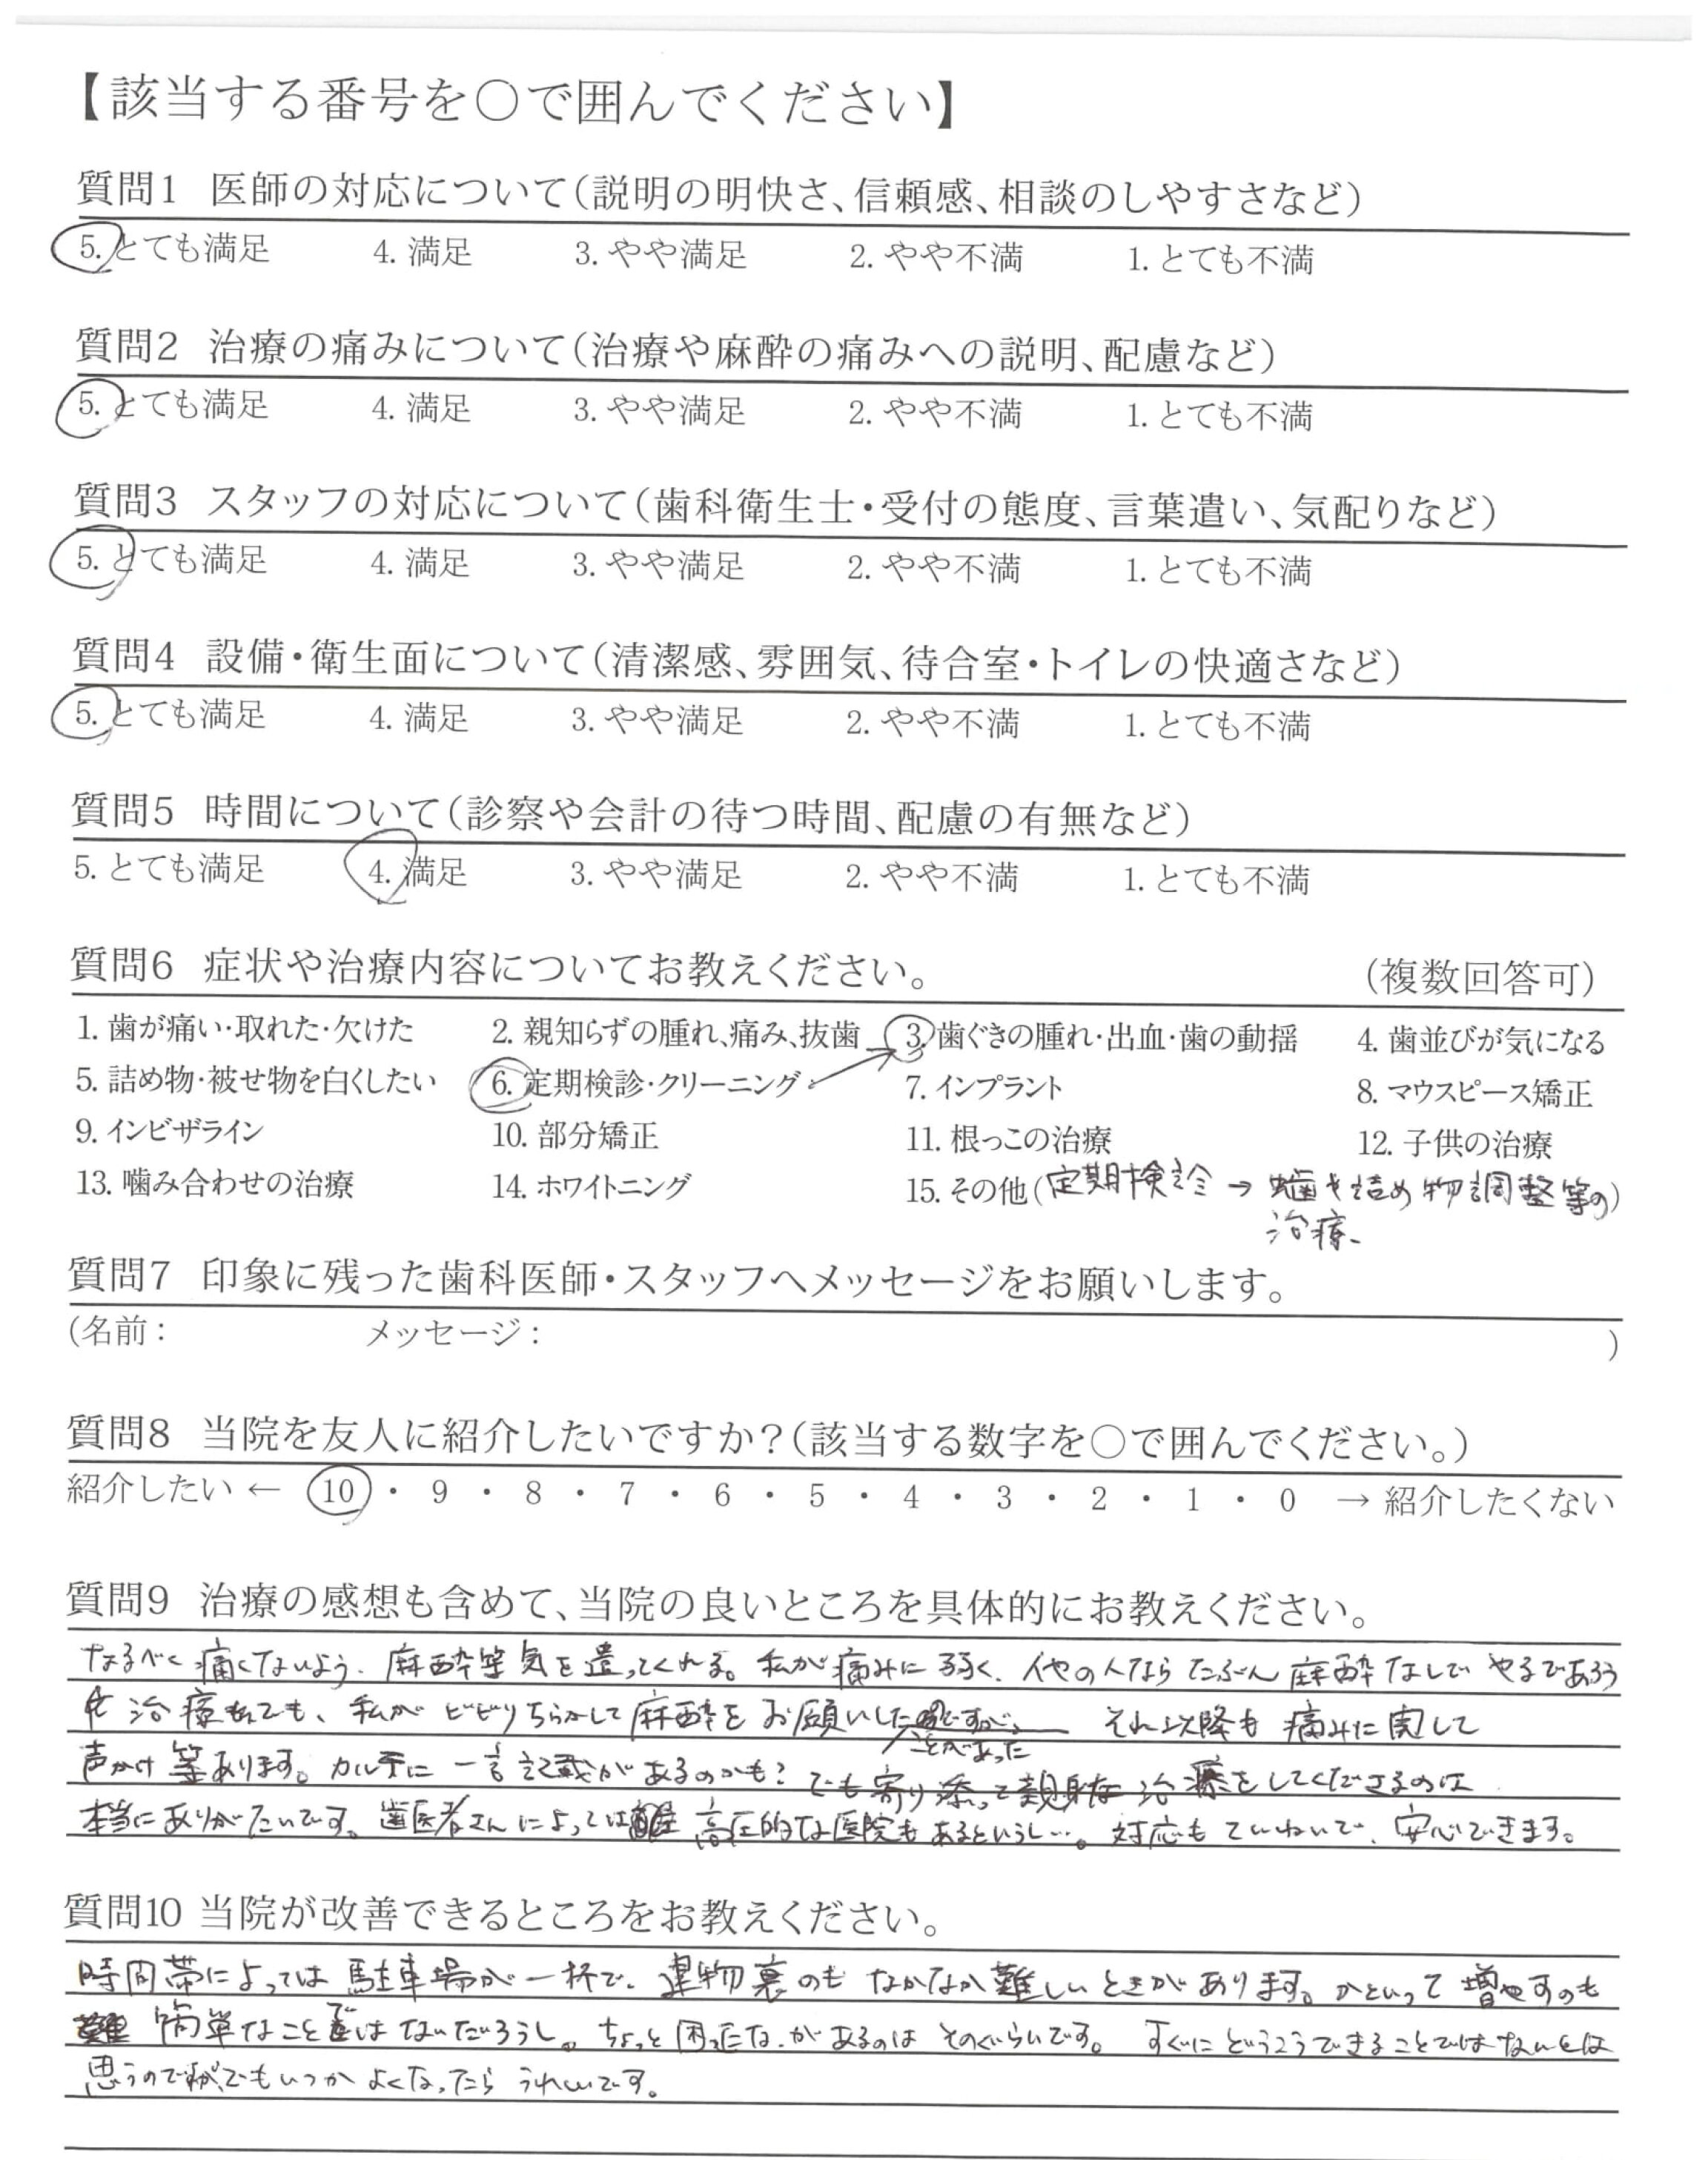 【該当する番号を○で囲んでください】
質問1 医師の対応について(説明の明快さ、信頼感、相談のしやすさなど)
5. とても満足 4. 満足 3. やや満足 2. やや不満 1. とても不満
質問2 治療の痛みについて(治療や麻酔の痛みへの説明、配慮など)
5. とても満足 4. 満足 3. やや満足 2. やや不満 1. とても不満
質問3 スタッフの対応について(歯科衛生士・受付の態度、言葉遣い、気配りなど)
5. とても満足 4. 満足 3. やや満足 2. やや不満 1. とても不満
質問4 設備・衛生面について(清潔感、雰囲気、待合室・トイレの快適さなど)
5. とても満足 4. 満足 3. やや満足 2. やや不満 1. とても不満
質問5 時間について(診察や会計の待つ時間、配慮の有無など)
5. とても満足 4. 満足 3. やや満足 2. やや不満 1. とても不満
質問6 症状や治療内容についてお教えください。 (複数回答可)
1. 歯が痛い・取れた・欠けた 2. 親知らずの腫れ、痛み、抜歯 3. 歯ぐきの腫れ・出血・歯の動揺 4. 歯並びが気になる
5. 詰め物・被せ物を白くしたい 6. 定期検診・クリーニング 7. インプラント 8. マウスピース矯正
9. インビザライン 10. 部分矯正 11. 根っこの治療 12. 子供の治療
13. 噛み合わせの治療 14. ホワイトニング 15. その他(定期検診→虫歯や詰め物調整等の)
治療、
質問7 印象に残った歯科医師・スタッフへメッセージをお願いします。
(名前: メッセージ: )
質問8 当院を友人に紹介したいですか?(該当する数字を○で囲んでください。)
紹介したい ← 10 ・ 9 ・ 8 ・ 7 ・ 6 ・ 5 ・ 4 ・ 3 ・ 2 ・ 1 ・ 0 → 紹介したくない
質問9 治療の感想も含めて、当院の良いところを具体的にお教えください。
なるべく痛くないよう、麻酔等気を遣ってくれる。私が痛みに弱く、他の人ならたぶん麻酔なしでやるであろう
治療でも、私がビビりちらかして麻酔をお願いしたことがあった それ以降も痛みに関して
声かけ等あります。カルテに一言記載があるのかも? でも寄り添って親身な治療をしてくださるのは
本当にありがたいです。歯医者さんによっては高圧的な医院もあるというし…。対応もていねいで、安心できます。
質問10 当院が改善できるところをお教えください。
時間帯によっては駐車場が一杯で、建物裏のもなかなか難しいときがあります。かといって増やすのも
簡単なことではないだろうし。ちょっと困ったながあるのはそのぐらいです。 すぐにどうこうできることではないとは
思うのですが、でもいつかよくなったらうれしいです。